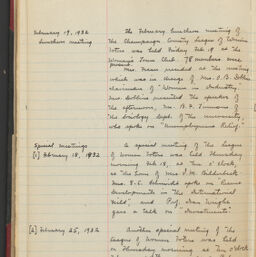 February 19, 1932
Luncheon meeting
The February luncheon meeting of
the Champaign County League of Women
Voters was held Friday Feb. 19 at the
Woman's Town Club. 78 members were
present.
Mrs. presided at the meeting
which was in charge of Mrs. J.B.
chairman of "Women in Industry."
Mrs. presented the speaker of
the afternoon, Mrs. B. F. Timmons of
the Sociology dept. of the university,
who spoke on "Unemployment Relief."
Special Meetings
[1] February 18, 1932
A special meeting of the League
of Women Voters was held Thursday
morning Feb. 18, at ten o'clock
at the home of Mrs. J. W.
Mrs. E. C. Schmidt spoke on "Recent
Developments in the International
Field", and Prof. Ivan Wright
gave a talk on "Investments".
[2] February 25, 1932
Another special meeting of the
League of Women Voters was held
on Thursday morning at ten o'clock